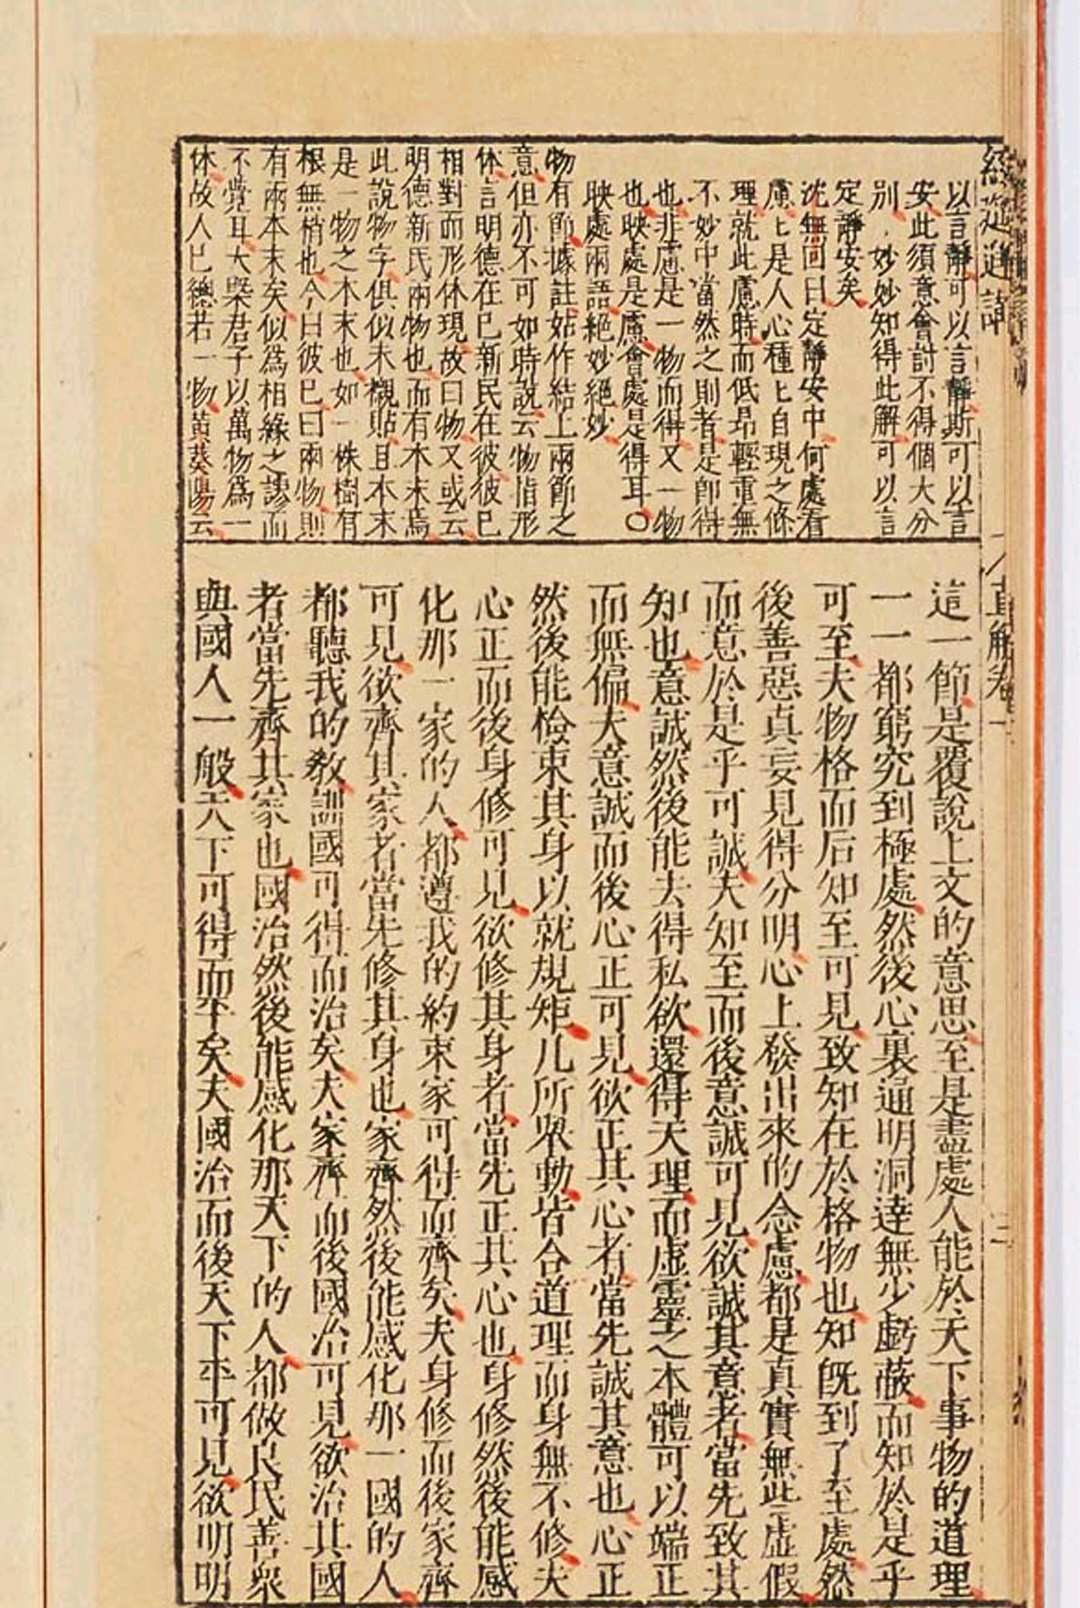 以言靜可以言靜斯可以言
安此須意會討不得個大分
別妙妙知得此解可以言
定靜安矣
沈無回曰定靜安中何處看
慮上是人心種上自現之條
理就此慮時而低昂輕重無
不妙中當然之則者是即得
也非慮是一物而得又一物
也映處是慮會處是得耳○
映處兩語絕妙絕妙
物有節據註姑作結上兩節之
意但亦不可如時說云物皆形
体言明德在已新民在彼彼已
相對而形休現故曰物又或云
明德新民兩物也而有本末焉
此說物字俱似未襯貼且本末
是一物之本末也如一株樹有
根無梢也今曰彼已曰兩物則
有兩本末矣似為相緣之謬而
不覺耳大槩君子以萬物為一
休故人已總若一物黃葵陽云
直解卷一
三
這一節是覆說上文的意思至是盡處人能於天下事物的道理
一一都窮究到極處然後心裏通明洞達無少虧蔽而知於是乎
可至夫物格而后知至可見致知在於格物也知旣到了至處然
後善惡真妄見得分明心上發出來的念慮都是真實無些虛假
而意於是乎可誠夫知至而後意誠可見欲誠其意者當先致其
知也意誠然後能去得私欲還得天理而虛靈之本體可以端正
而無偏夫意誠而後心正可見欲正其心者當先誠其意也心正
然後能檢束其身以就規矩凡所舉動皆合道理而身無不修夫
心正而後身修可見欲修其身者當先正其心也身修然後能感
化那一家的人都遵我的約束家可得而齊矣夫身修而後家齊
可見欲齊其家者當先修其身也家齊然後能感化那一國的人
都聽我的教訓國可得而治矣夫家齊而後國治可見欲治其國
者當先齊其家也國治然後能感化那天下的人都做良民善衆
與國人一般天下可得而平矣夫國治而後天下平可見欲明明